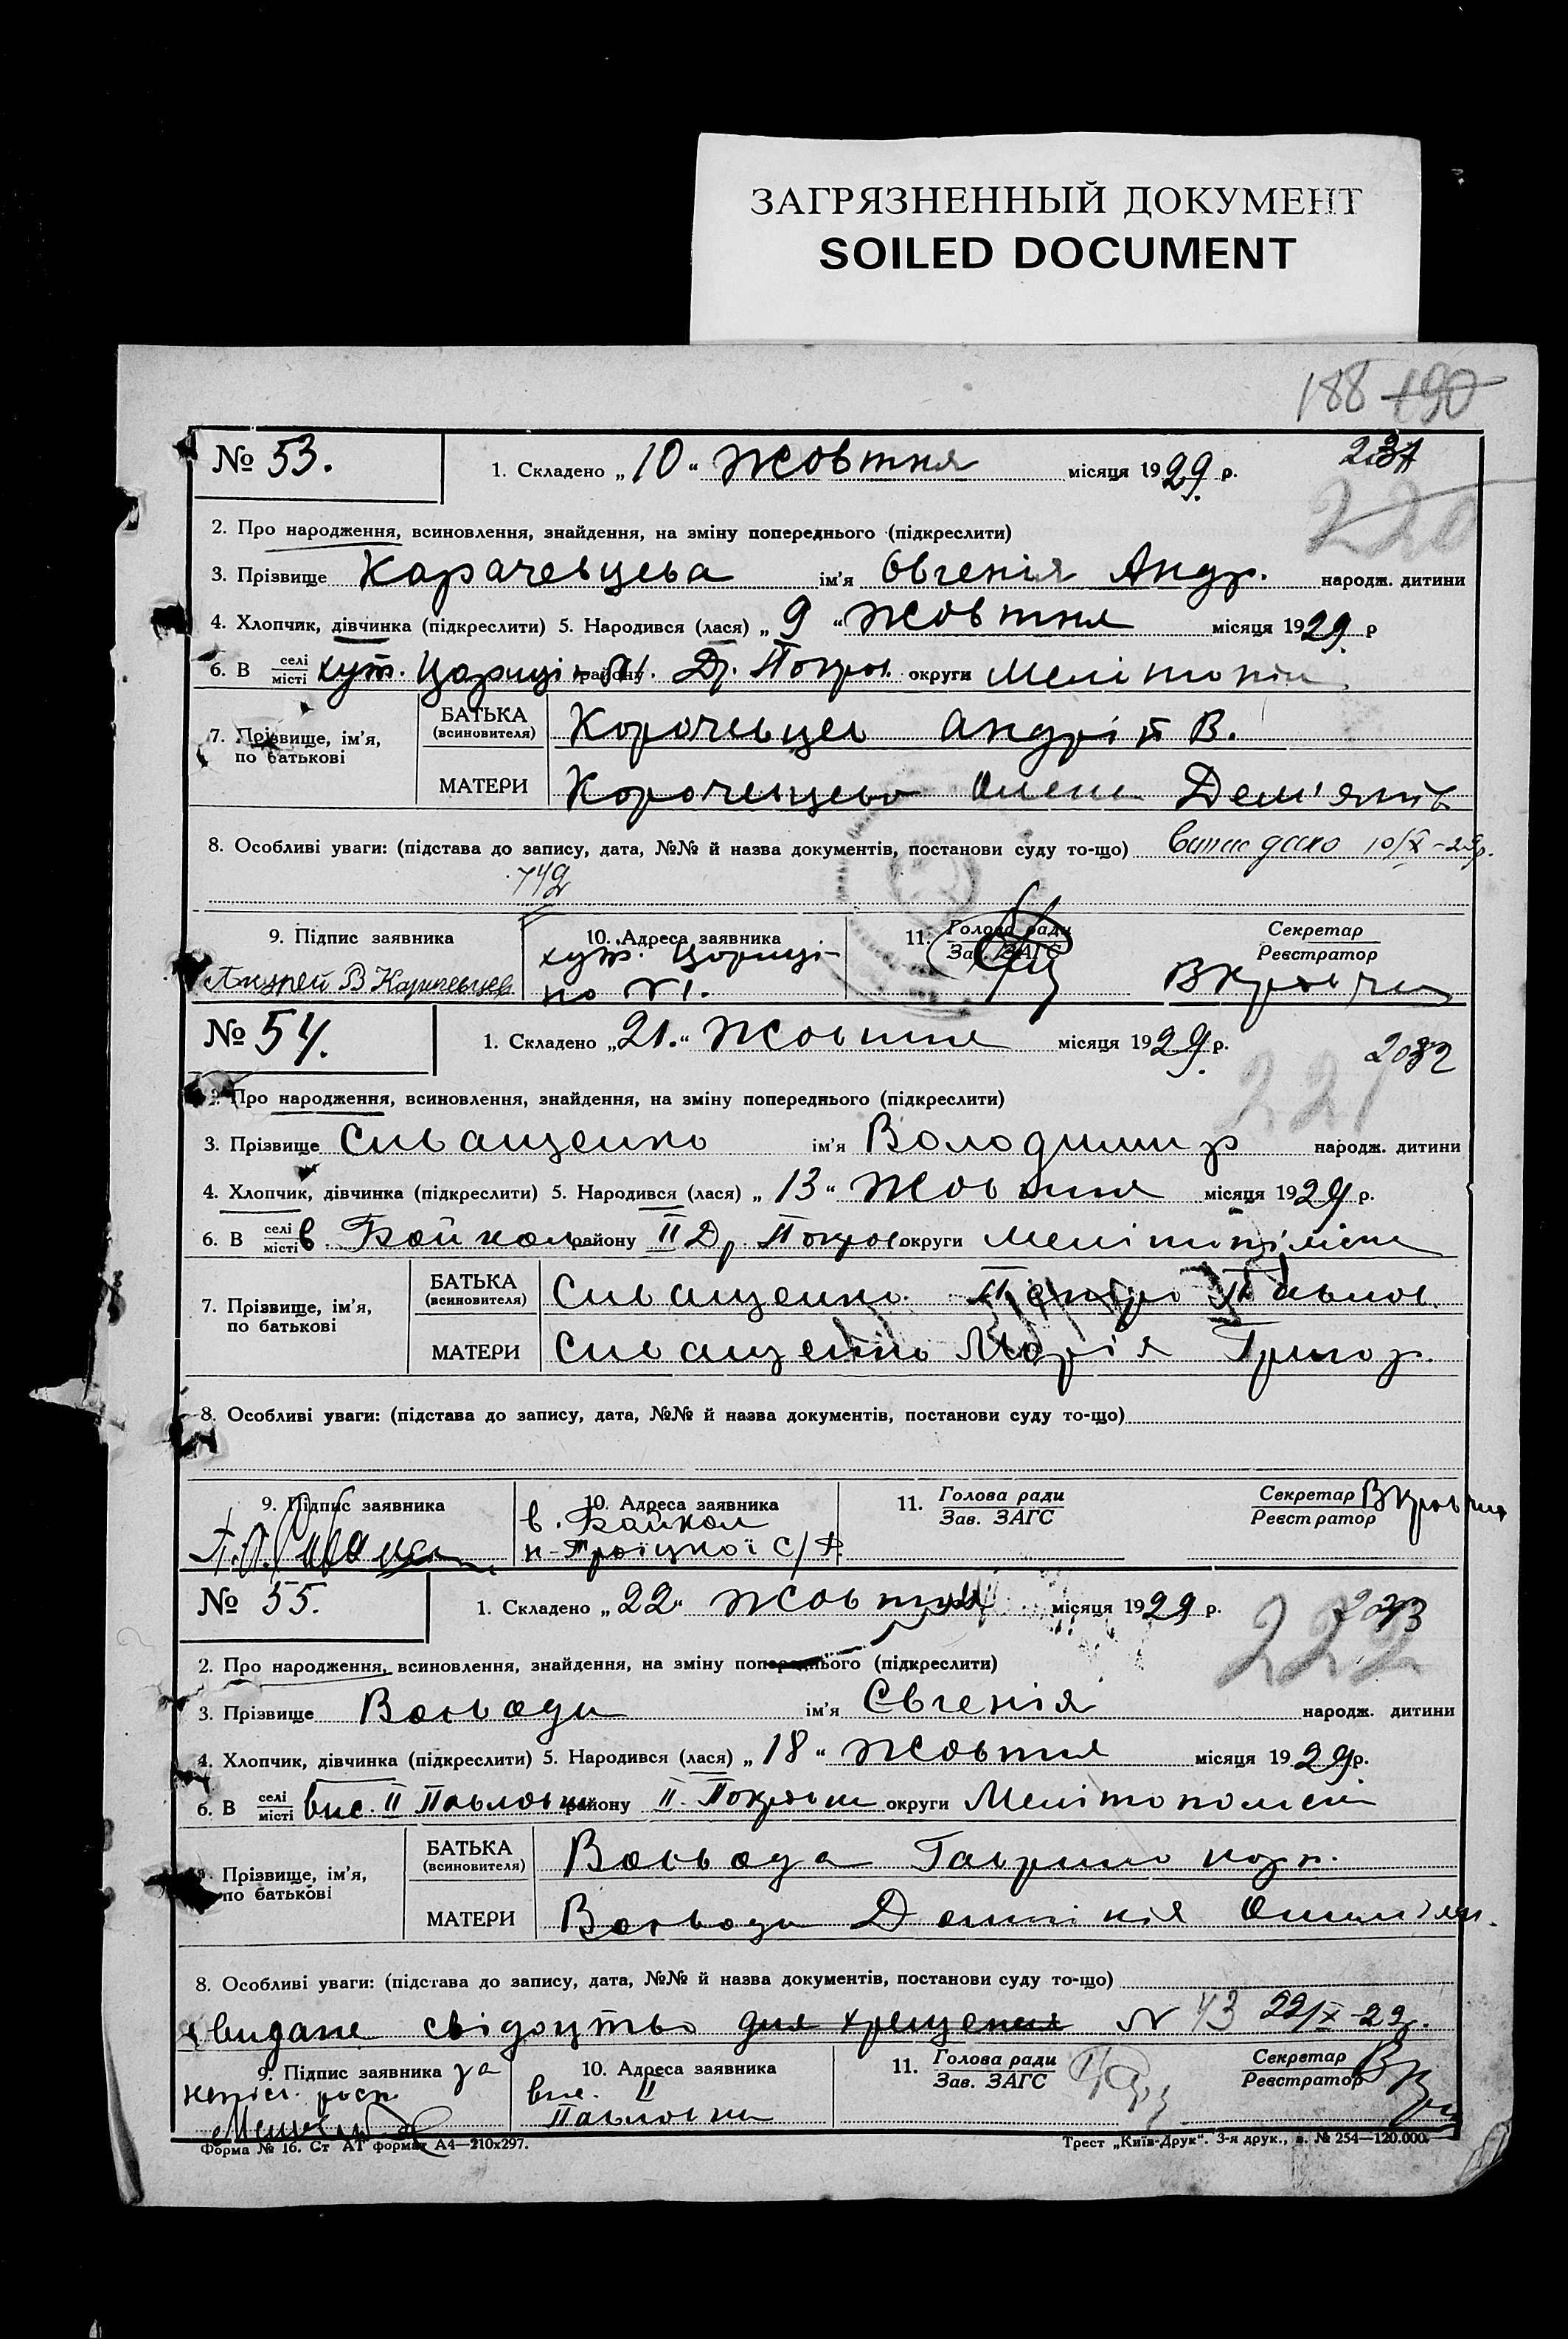 ЗАГРЯЗНЕННЫЙ ДОКУМЕНТ
SOILED DOCUMENT
188 190
№ 53.
1. Складено „10“ Жовтня місяця 1929 р.
220
2. Про народження, всиновлення, знайдення, на зміну попереднього (підкреслити)
3. Прізвище Карачевцева ім'я Євгенія Андр. народж. дитини
4. Хлопчик, дівчинка (підкреслити) 5. Народився (лася) „9“ Жовтня місяця 1929 р
6. В селі/місті хут. району Др. Покров. округи
7. Прізвище, ім'я, по батькові
БАТЬКА (всиновителя) Корочевцев Андрій В.
МАТЕРИ Корочевцева Олена Дем'янів
8. Особливі уваги: (підстава до запису, дата, №№ й назва документів, постанови суду то-що) 10/X-29р.
742
9. Підпис заявника
10. Адреса заявника
11. Голова ради
Зав. ЗАГС
Секретар
Реєстратор
Андрей В Карачевцев
хут.
№1.
№ 54.
1. Складено „21.“ Жовтня місяця 1929 р.
221
2. Про народження, всиновлення, знайдення, на зміну попереднього (підкреслити)
3. Прізвище Сиващенко ім'я Володимир народж. дитини
4. Хлопчик, дівчинка (підкреслити) 5. Народився (лася) „13“ Жовтня місяця 1929 р.
6. В селі/місті в. району II Др. Покров округи
7. Прізвище, ім'я, по батькові
БАТЬКА (всиновителя) Сиващенко Петро Павлов.
МАТЕРИ Сиващенко Марія Григор.
8. Особливі уваги: (підстава до запису, дата, №№ й назва документів, постанови суду то-що)
9. Підпис заявника
10. Адреса заявника
11. Голова ради
Зав. ЗАГС
Секретар
Реєстратор
н-Троїцкої С/Р
№ 55.
1. Складено „22“ Жовтня місяця 1929 р.
222
2. Про народження, всиновлення, знайдення, на зміну попереднього (підкреслити)
3. Прізвище Воєвода ім'я Євгенія народж. дитини
4. Хлопчик, дівчинка (підкреслити) 5. Народився (лася) „18“ Жовтня місяця 1929р.
6. В селі/місті вис. II Павловка району II. Покровки округи
7. Прізвище, ім'я, по батькові
БАТЬКА (всиновителя) Воєвода Гаврило
МАТЕРИ Воєвода
8. Особливі уваги: (підстава до запису, дата, №№ й назва документів, постанови суду то-що)
видане свідоцтво для хрещення № 43 22/X-29.
9. Підпис заявника за
10. Адреса заявника
11. Голова ради
Зав. ЗАГС
Секретар
Реєстратор
вис. II
Павловка
Форма № 16. Ст АТ формат А4—210х297.
Трест „Київ-Друк“. 3-я друк., з. № 254—120.000.